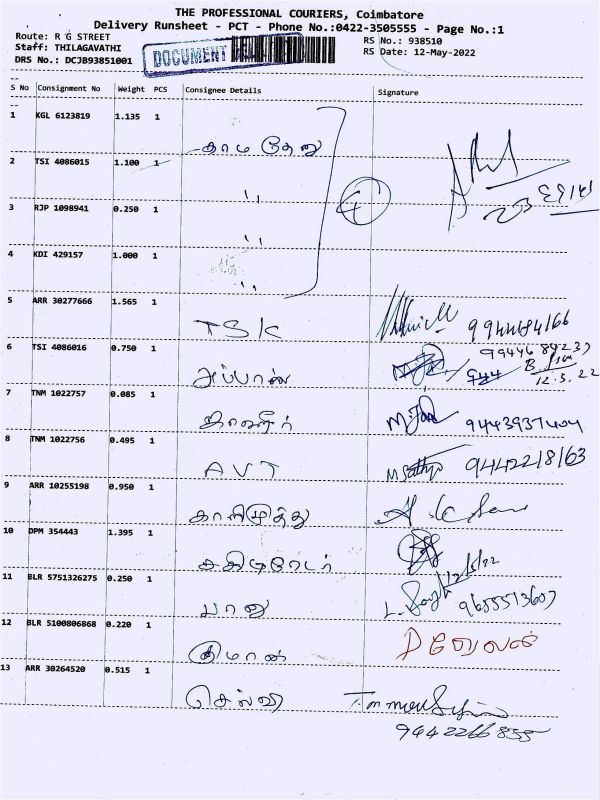 THE PROFESSIONAL COURIERS, Coimbatore
Delivery Runsheet - PCT - Phone No.:0422-3505555 - Page No.:1
Route: R G STREET
RS No.: 938510
Staff: THILAGAVATHI
RS Date: 12-May-2022
DRS No.: DCJB93851001
DOCUMENT
S No Consignment No Weight PCS Consignee Details Signature
1 KGL 6123819 1.135 1
காமதேனு
2 TSI 4086015 1.100 1
,,
3 RJP 1098941 0.250 1
,,
4 KDI 429157 1.000 1
,,
4
5 ARR 30277666 1.565 1
TSK
6 TSI 4086016 0.750 1
அப்பான்
12.5.22
7 TNM 1022757 0.085 1
8 TNM 1022756 0.495 1
AVT 9442218163
9 ARR 10255198 0.950 1
காளிமுத்து
10 DPM 354443 1.395 1
12/5/22
11 BLR 5751326275 0.250 1
பானு 9655513607
12 BLR 5100806868 0.220 1
D வேலன்
13 ARR 30264520 0.515 1
செல்வி
9442266855